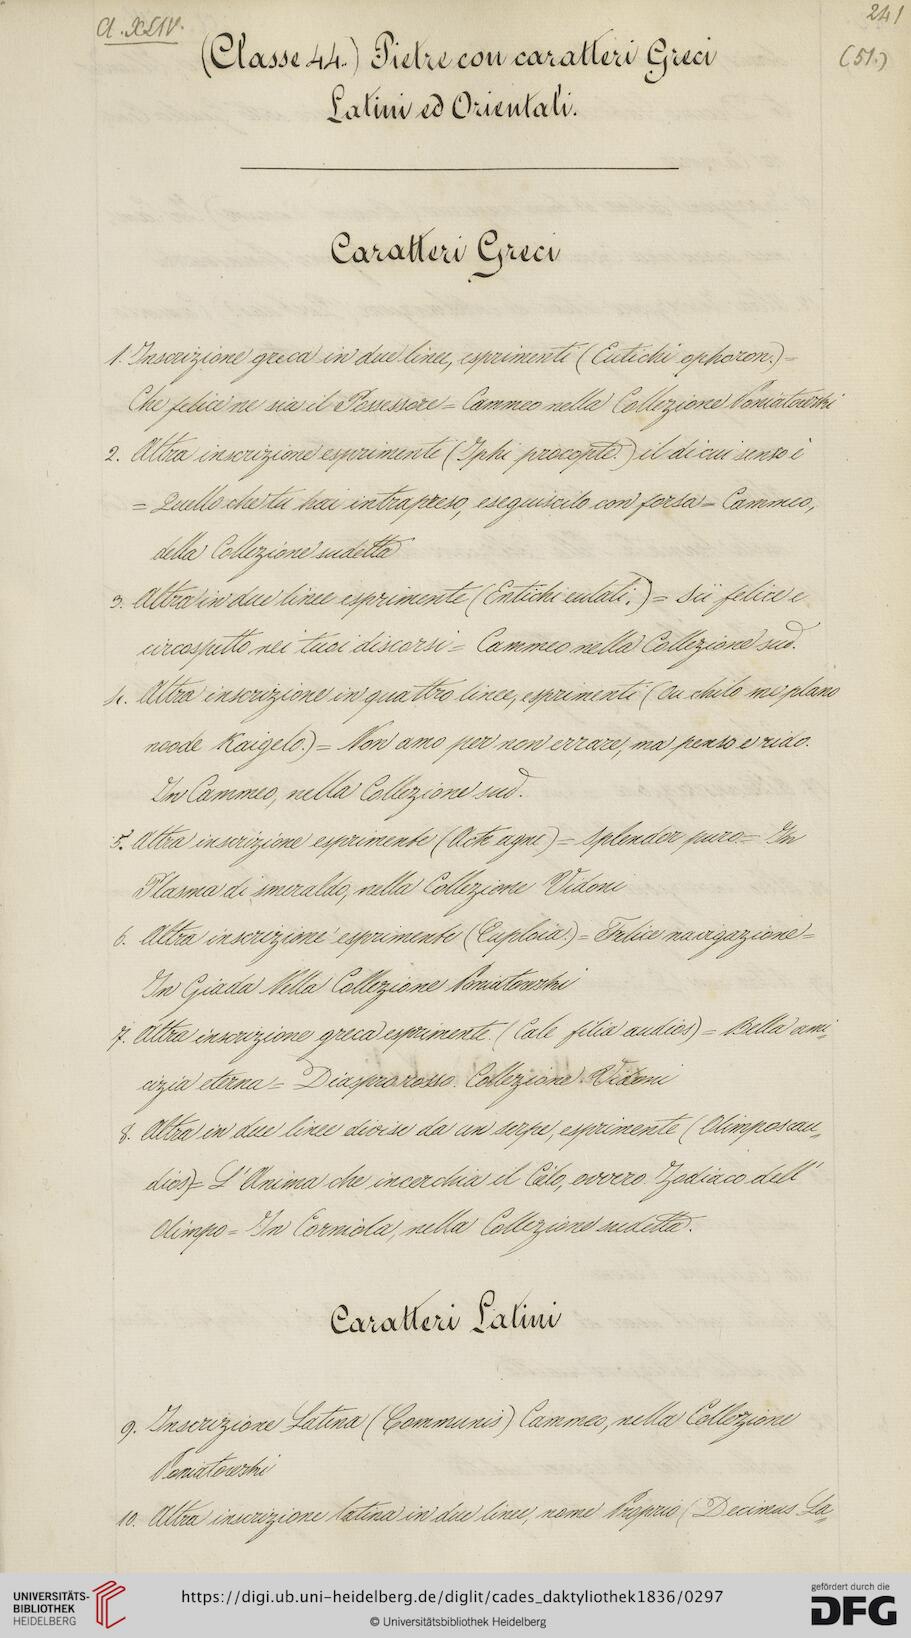 A. XLIV.
241
(51.)
(Classe 44.) Pietre con caratteri Greci
Latini ed Orientali.
Caratteri Greci
1. Inscrizione greca in due linee, esprimenti (Eutichi ophoron.) =
Che felice ne sia il Possessore = Cammeo nella Collezione Poniatowski
2. Altra inscrizione esprimente (Iphi procopte.) il di cui senso è
= Quello che tu hai intrapreso, eseguiscilo con forsa = Cammeo,
della Collezione sudetta
3. Altra in due linee esprimente (Entichi eulali.) = Sii felice e
circospetto nei tuoi discorsi = Cammeo nella Collezione sud.
4. Altra inscrizione in quattro linee, esprimenti (Ou chilo me plano
noode Kaigelo.) = Non amo per non errare, ma penso e rido.
In Cammeo, nella Collezione sud.
5. Altra inscrizione esprimente (Acte agne) = Splendor puro = In
Plasma di smeraldo, nella Collezione Vidoni
6. Altra inscrizione esprimente (Euploia.) = Felice navigazione =
In Giada Nella Collezione Poniatowski
7. Altra inscrizione greca esprimente (Cale filia audios) = Bella ami,
cizia eterna = Diaspro rosso. Collezione Vidoni
8. Altra in due linee divise da un serpe, esprimente (Olimpos au,
dios) = L'Anima che incerchia il Cielo, ovvero Zodiaco dell'
Olimpo = In Corniola, nella Collezione sudetta.
Caratteri Latini
9. Inscrizione Latina (Communis) Cammeo, nella Collezione
Poniatowski
10. Altra inscrizione latina in due linee, nome Proprio (Decimus La,
UNIVERSITÄTS-
BIBLIOTHEK
HEIDELBERG
https://digi.ub.uni-heidelberg.de/diglit/cades_daktyliothek1836/0297
© Universitätsbibliothek Heidelberg
gefördert durch die
DFG